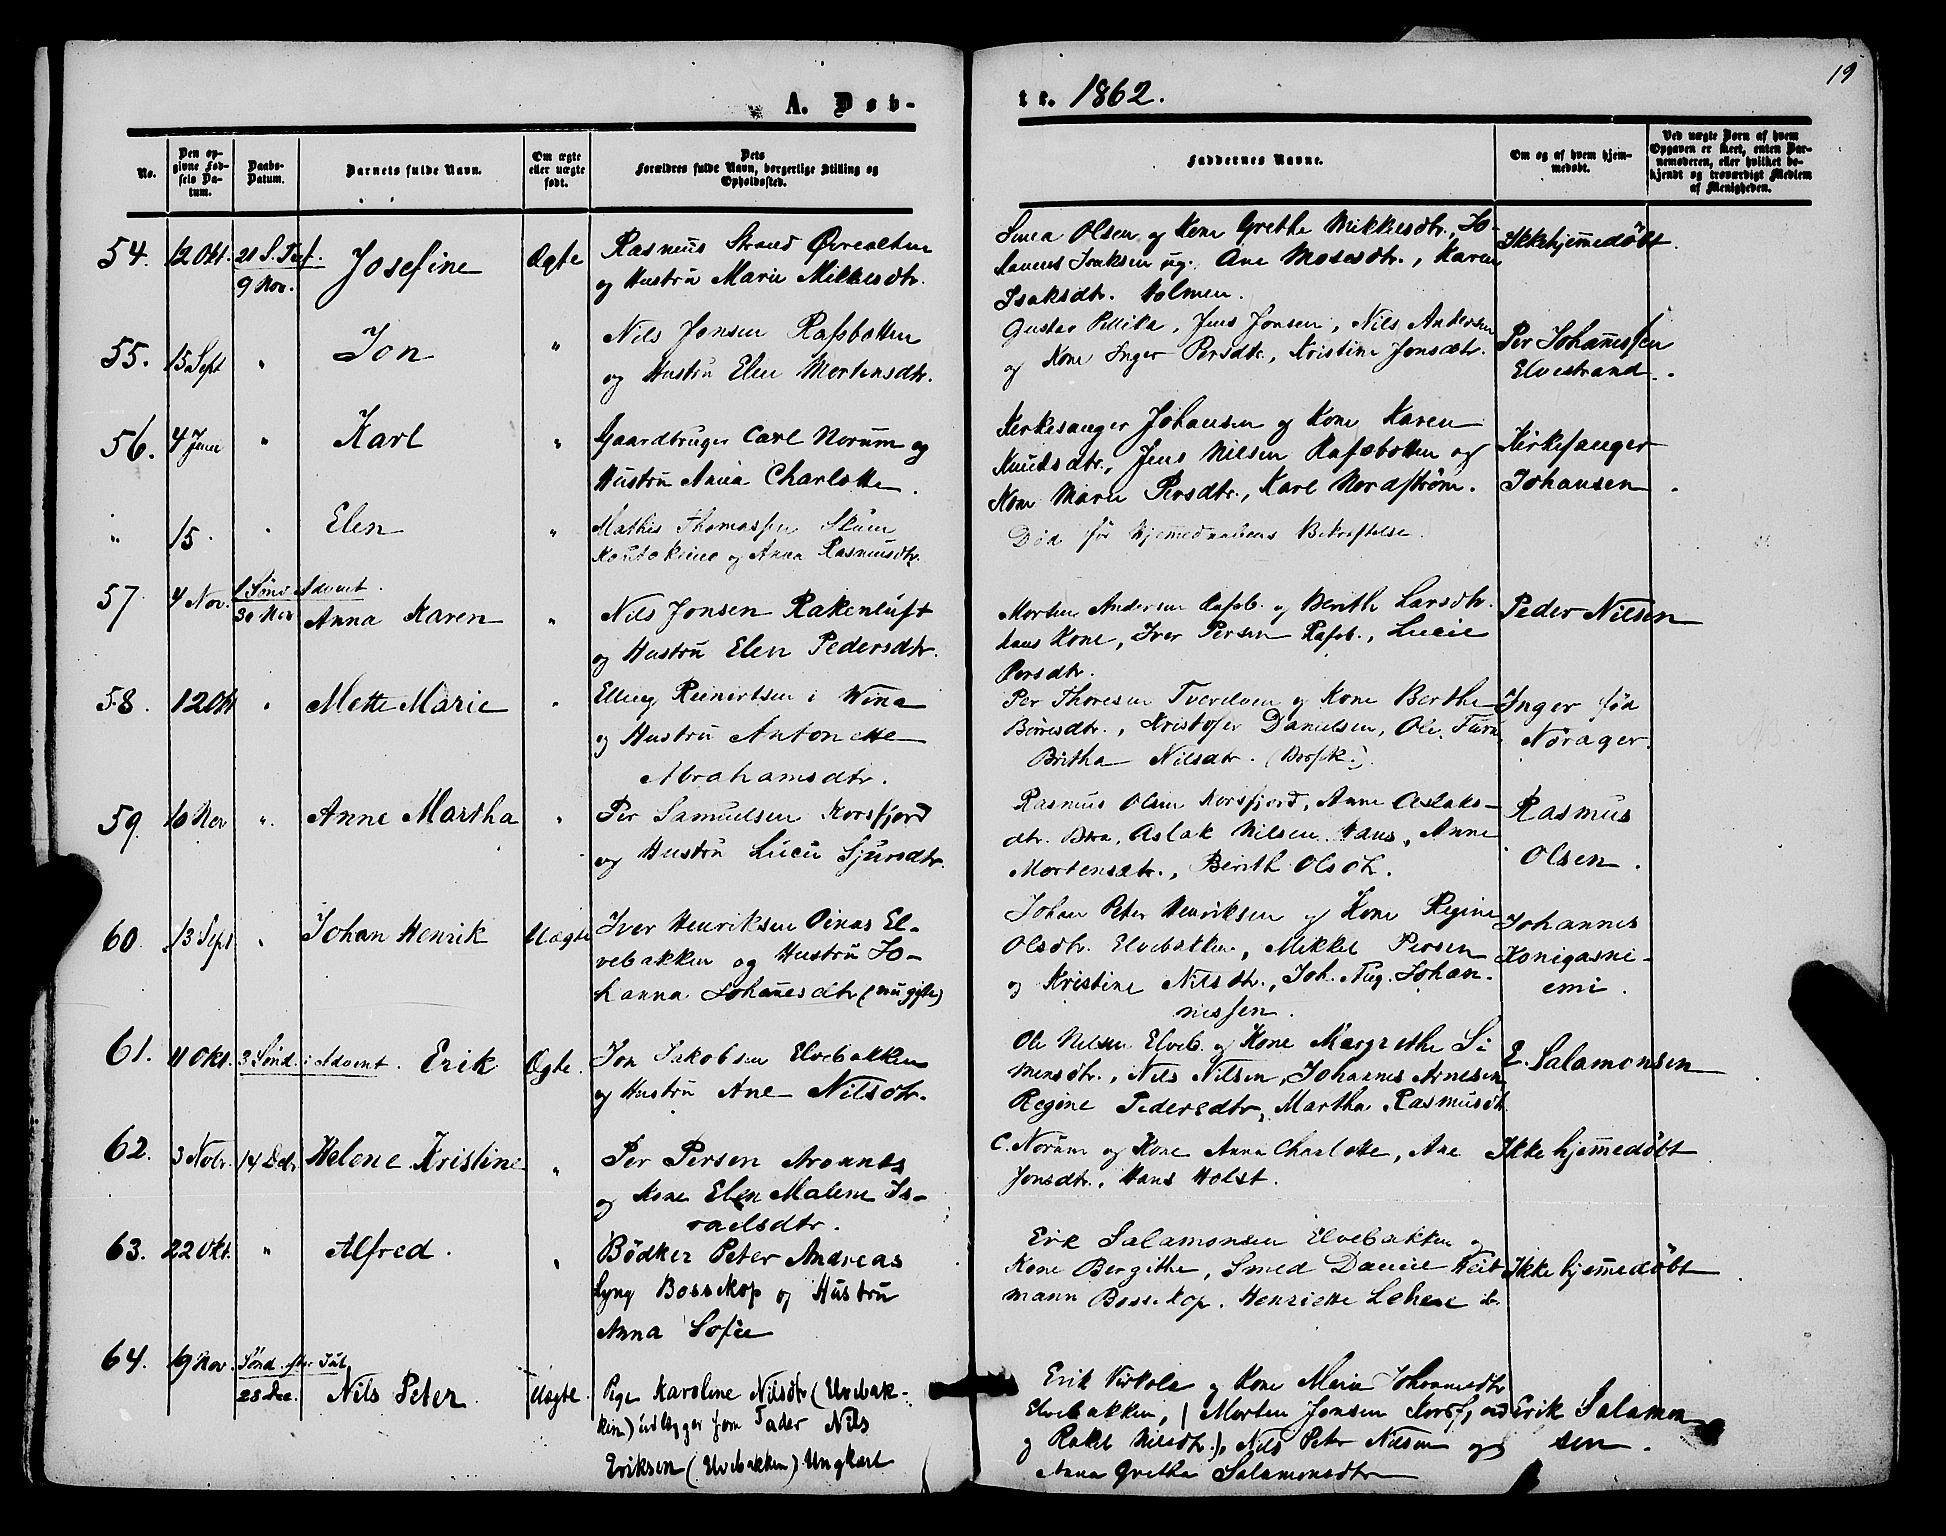 19
A. Døb-
te. 1862.
No.
Den op-
givne Fød-
sels Da-
tum.
Daabs-
Datum.
Barnets fulde Navn.
Om ægte
eller uægte
født.
Dets
Forældres fulde Navn, borgerlige Stilling og
Opholdssted.
Faddernes Navne.
Om og af hvem hjem-
medøbt.
Ved uægte Børn af hvem
Opgaven er skeet, enten Bar-
nemoderen, eller hvilket be-
kjendt og troværdigt Medlem
af Menigheden.
54. 12 Okt. 21 S. Tref.
9 Nov.
Josefine
Ægte
Rasmus Strand Øvrealten
og Hustru Marie Mikkelsdtr.
Olsen og Kone Grethe Mikkelsdtr., Jo-
Isaksen og Ane Mosesdtr., Karen
Isaksdtr. Holmen.
Ikke hjemmedøbt.
55. 15 Sept " Jon "
Nils Jonsen Rafsbotten
og Hustru Elen Mortensdtr.
Gustav Pillika, Jens Jonsen, Nils Andersen
og Kone Inger Persdtr., Kristine Jonsdtr.
Per Johannessen
Elvestrand.
56. 4 Juni " Karl "
Gaardbruger Carl Norum og
Hustru Anna Charlotte.
Kirkesanger Johansen og Kone Karen
Knudsdtr., Jens Nilsen Rafsbotten og
Kone Marie Persdtr., Karl Nordstrøm.
Kirkesanger
Johansen.
" 15. " Elen "
Mathis Thomassen Skum
Koutokeino og Anna Rasmusdtr.
Død før Hjemmedaabens Bekræftelse.
57. 4 Nov. 1 Sønd Advent.
30 Nov
Anna Karen "
Nils Jonsen Rakenluft
og Hustru Elen Pedersdtr.
Morten Andersen Rafsb. og Berith Larsdtr.
hans Kone, Iver Persen Rafsb., Lucie
Persdtr.
Peder Nilsen
58. 12 Okt " Mette Marie "
Elling Reinertsen i Wina
og Hustru Antonette
Abrahamsdtr.
Per Thoresen Tverelven og Kone Berthe
Børresdtr., Kristofer Danielsen, Ole
Britha Nilsdtr.
Inger fød
Norager.
59. 10 Nov ". Anne Martha "
Per Samuelsen Korsfjord
og Hustru Lucie Sjursdtr.
Rasmus Olsen Korsfjord, Anne Aslaks-
dtr. Aslak Nilsen Anne
Mortensdtr., Berith Olsdtr.
Rasmus
Olsen.
60. 13 Sept " Johan Henrik Uægte
Iver Henriksen Oinas El-
vebakken og Hustru Jo-
hanna Johannesdtr (nu gifte)
Johan Peter Henriksen og Kone Regine
Olsdtr. Elvebakken, Mikkel Persen
og Kristine Nilsdtr., Joh. Aug. Johan-
nessen.
Johannes
Konigasni-
emi.
61. 11 Okt. 3 Sønd. i Advent. Erik Ægte.
Jon Jakobsen Elvebakken
og Hustru Ane Nilsdtr.
Ole Nilsen Elveb. og Kone Margrethe Si-
monsdtr., Nils Nilsen, Johannes Arnesen,
Regine Pedersdtr, Martha Rasmusdtr.
E. Salamonsen
62. 3 Novbr. 14 Decbr. Helene Kristine "
Per Persen Aronnes
og Kone Elen Malene Is-
raelsdtr.
C. Norum og Kone Anna Charlotte, Ane
Jonsdtr., Hans Holst.
Ikke hjemmedøbt
63. 22 Okt. " Alfred. "
Bødker Peter Andreas
Lyng Bossekop og Hustru
Anna Sofie
Erik Salamonsen Elvebakken og
Kone Bergithe, Smed Daniel Heit-
mann Bossekop. Henriette ib.
Ikke hjemmedøbt
64. 9 Nov. Sønd. efter Jul
28 Dec.
Nils Peter Uægte.
Pige Karoline Nilsdtr (Elvebak-
ken) udlægger som Fader Nils
Eriksen (Elvebakken) Ungkarl
Erik Virkola og Kone Maria Johannesdtr
Elvebakken, (Morten Jonsen Korsfjord
og Rakel Nilsdtr.), Nils Peter Nilsen og
Anna Grethe Salamonsdtr
Erik Salamon-
sen.